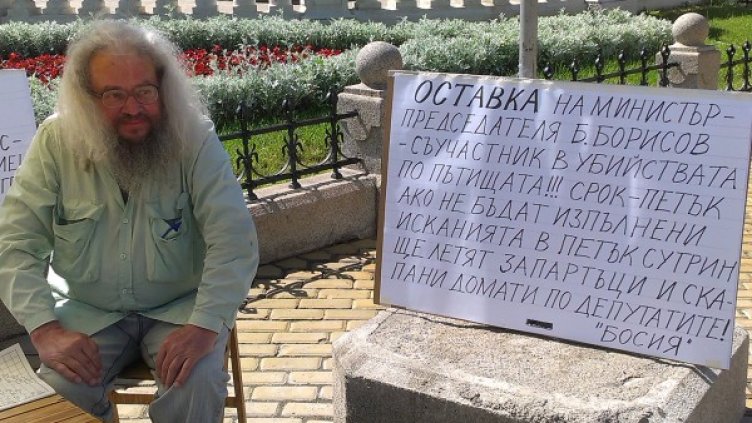 С-
МИЕ!
П
ОСТАВКА НА МИНИСТЪР-
ПРЕДСЕДАТЕЛЯ Б.БОРИСОВ
-СЪУЧАСТНИК В УБИЙСТВАТА
ПО ПЪТИЩАТА!!! СРОК-ПЕТЪК
АКО НЕ БЪДАТ ИЗПЪЛНЕНИ
ИСКАНИЯТА В ПЕТЪК СУТРИН
ЩЕ ЛЕТЯТ ЗАПАРТЪЦИ И СКА-
ПАНИ ДОМАТИ ПО ДЕПУТАТИТЕ!
"БОСИЯ"